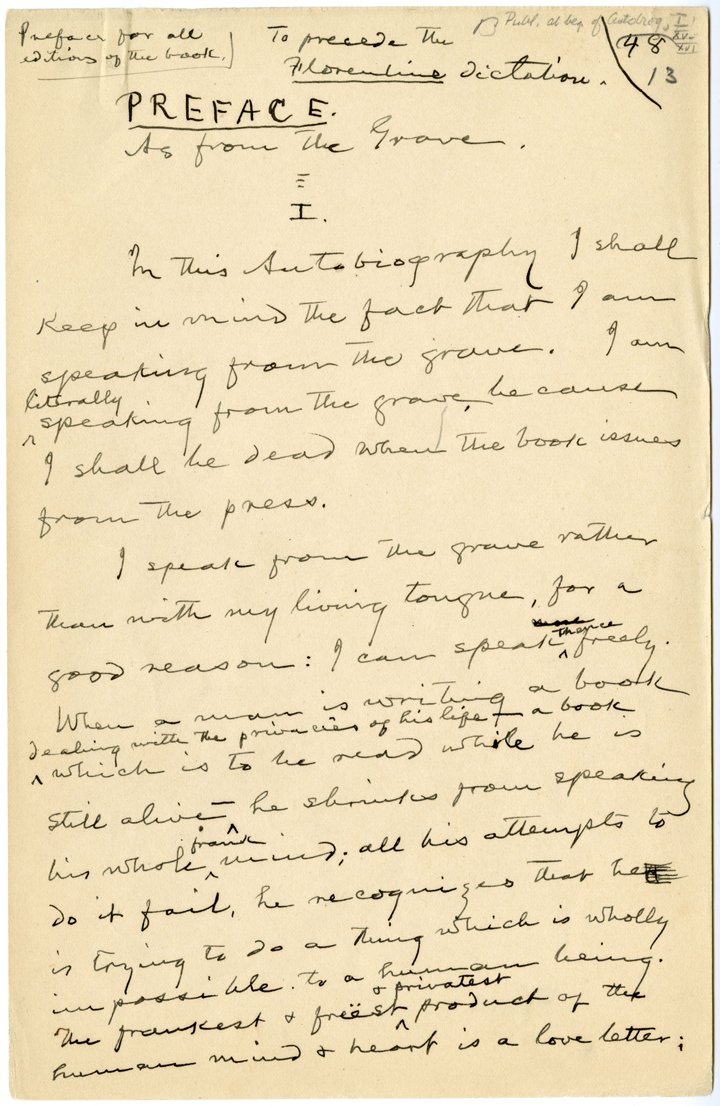 Preface for all
editions of the book.
To precede the
Florentine dictation.
Publ. at beg. of Autobiog, I
xv-
xvi
48
13
PREFACE.
As from the Grave.
I.
In this Autobiography I shall
keep in mind the fact that I am
speaking from the grave. I am
literally
speaking from the grave, because
I shall be dead when the book issues
from the press.
I speak from the grave rather
than with my living tongue, for a
good reason: I can speak thence freely.
When a man is writing a book
dealing with the privacies of his life — a book
which is to be read while he is
still alive — he shrinks from speaking
his whole frank mind; all his attempts to
do it fail, he recognizes that he
is trying to do a thing which is wholly
impossible to a human being.
& privatest
The frankest & freëst product of the
human mind & heart is a love letter;